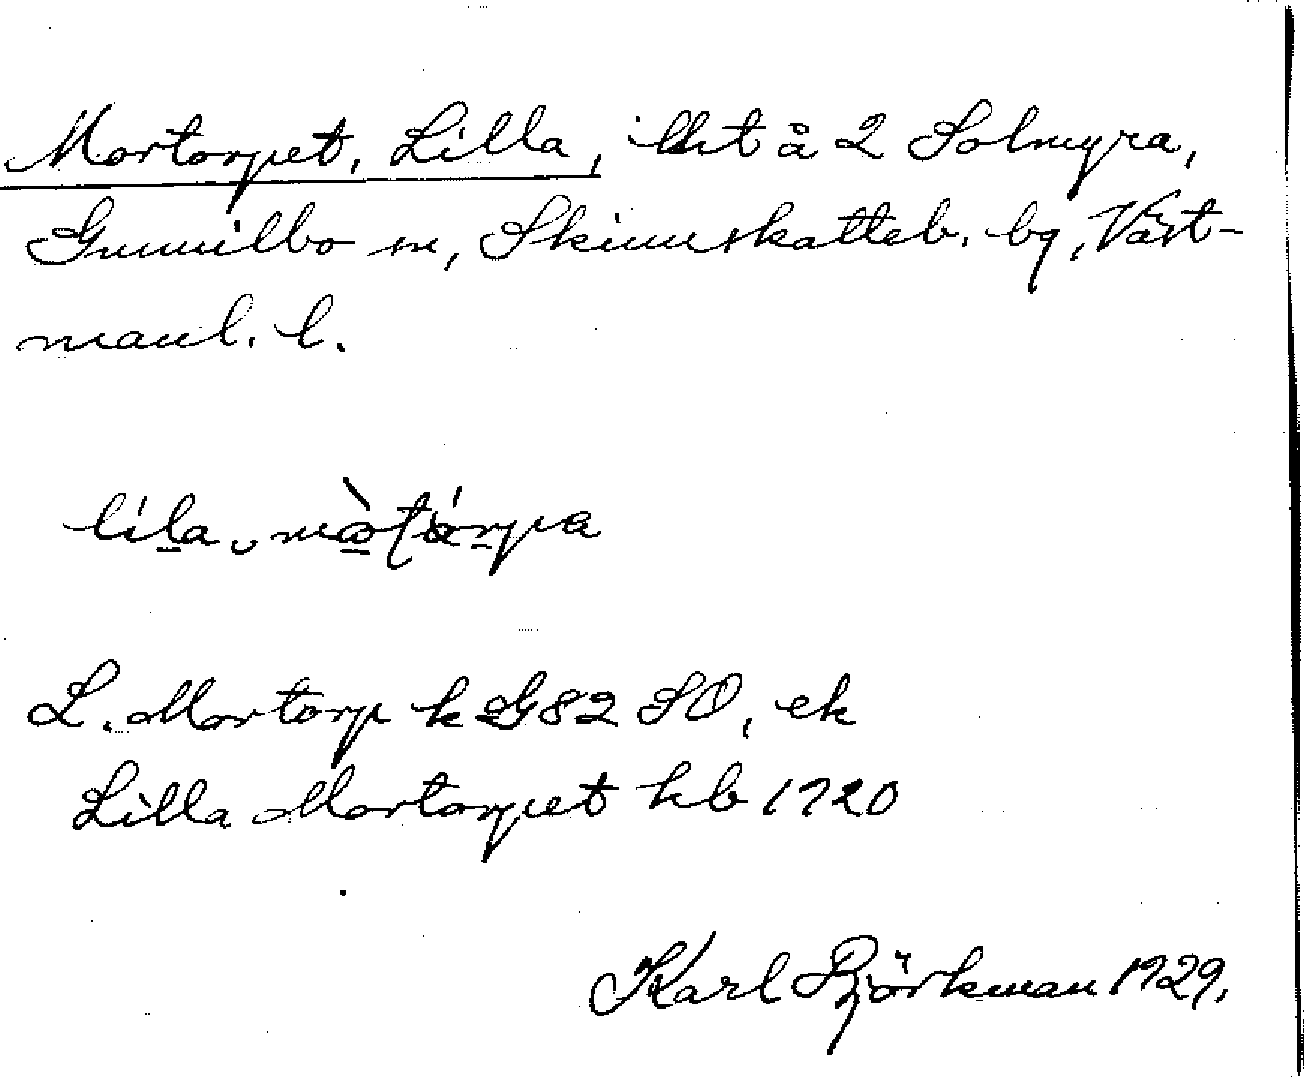 Mortorpet, Lilla, lht å 2 Solmyra,
Gunnilbo sn, Skinnskatteb. bg, Väst-
manl. l.
L. Mortorp k G82 SO, ek
Lilla Mortorpet kb 1920
Karl Björkman 1929.